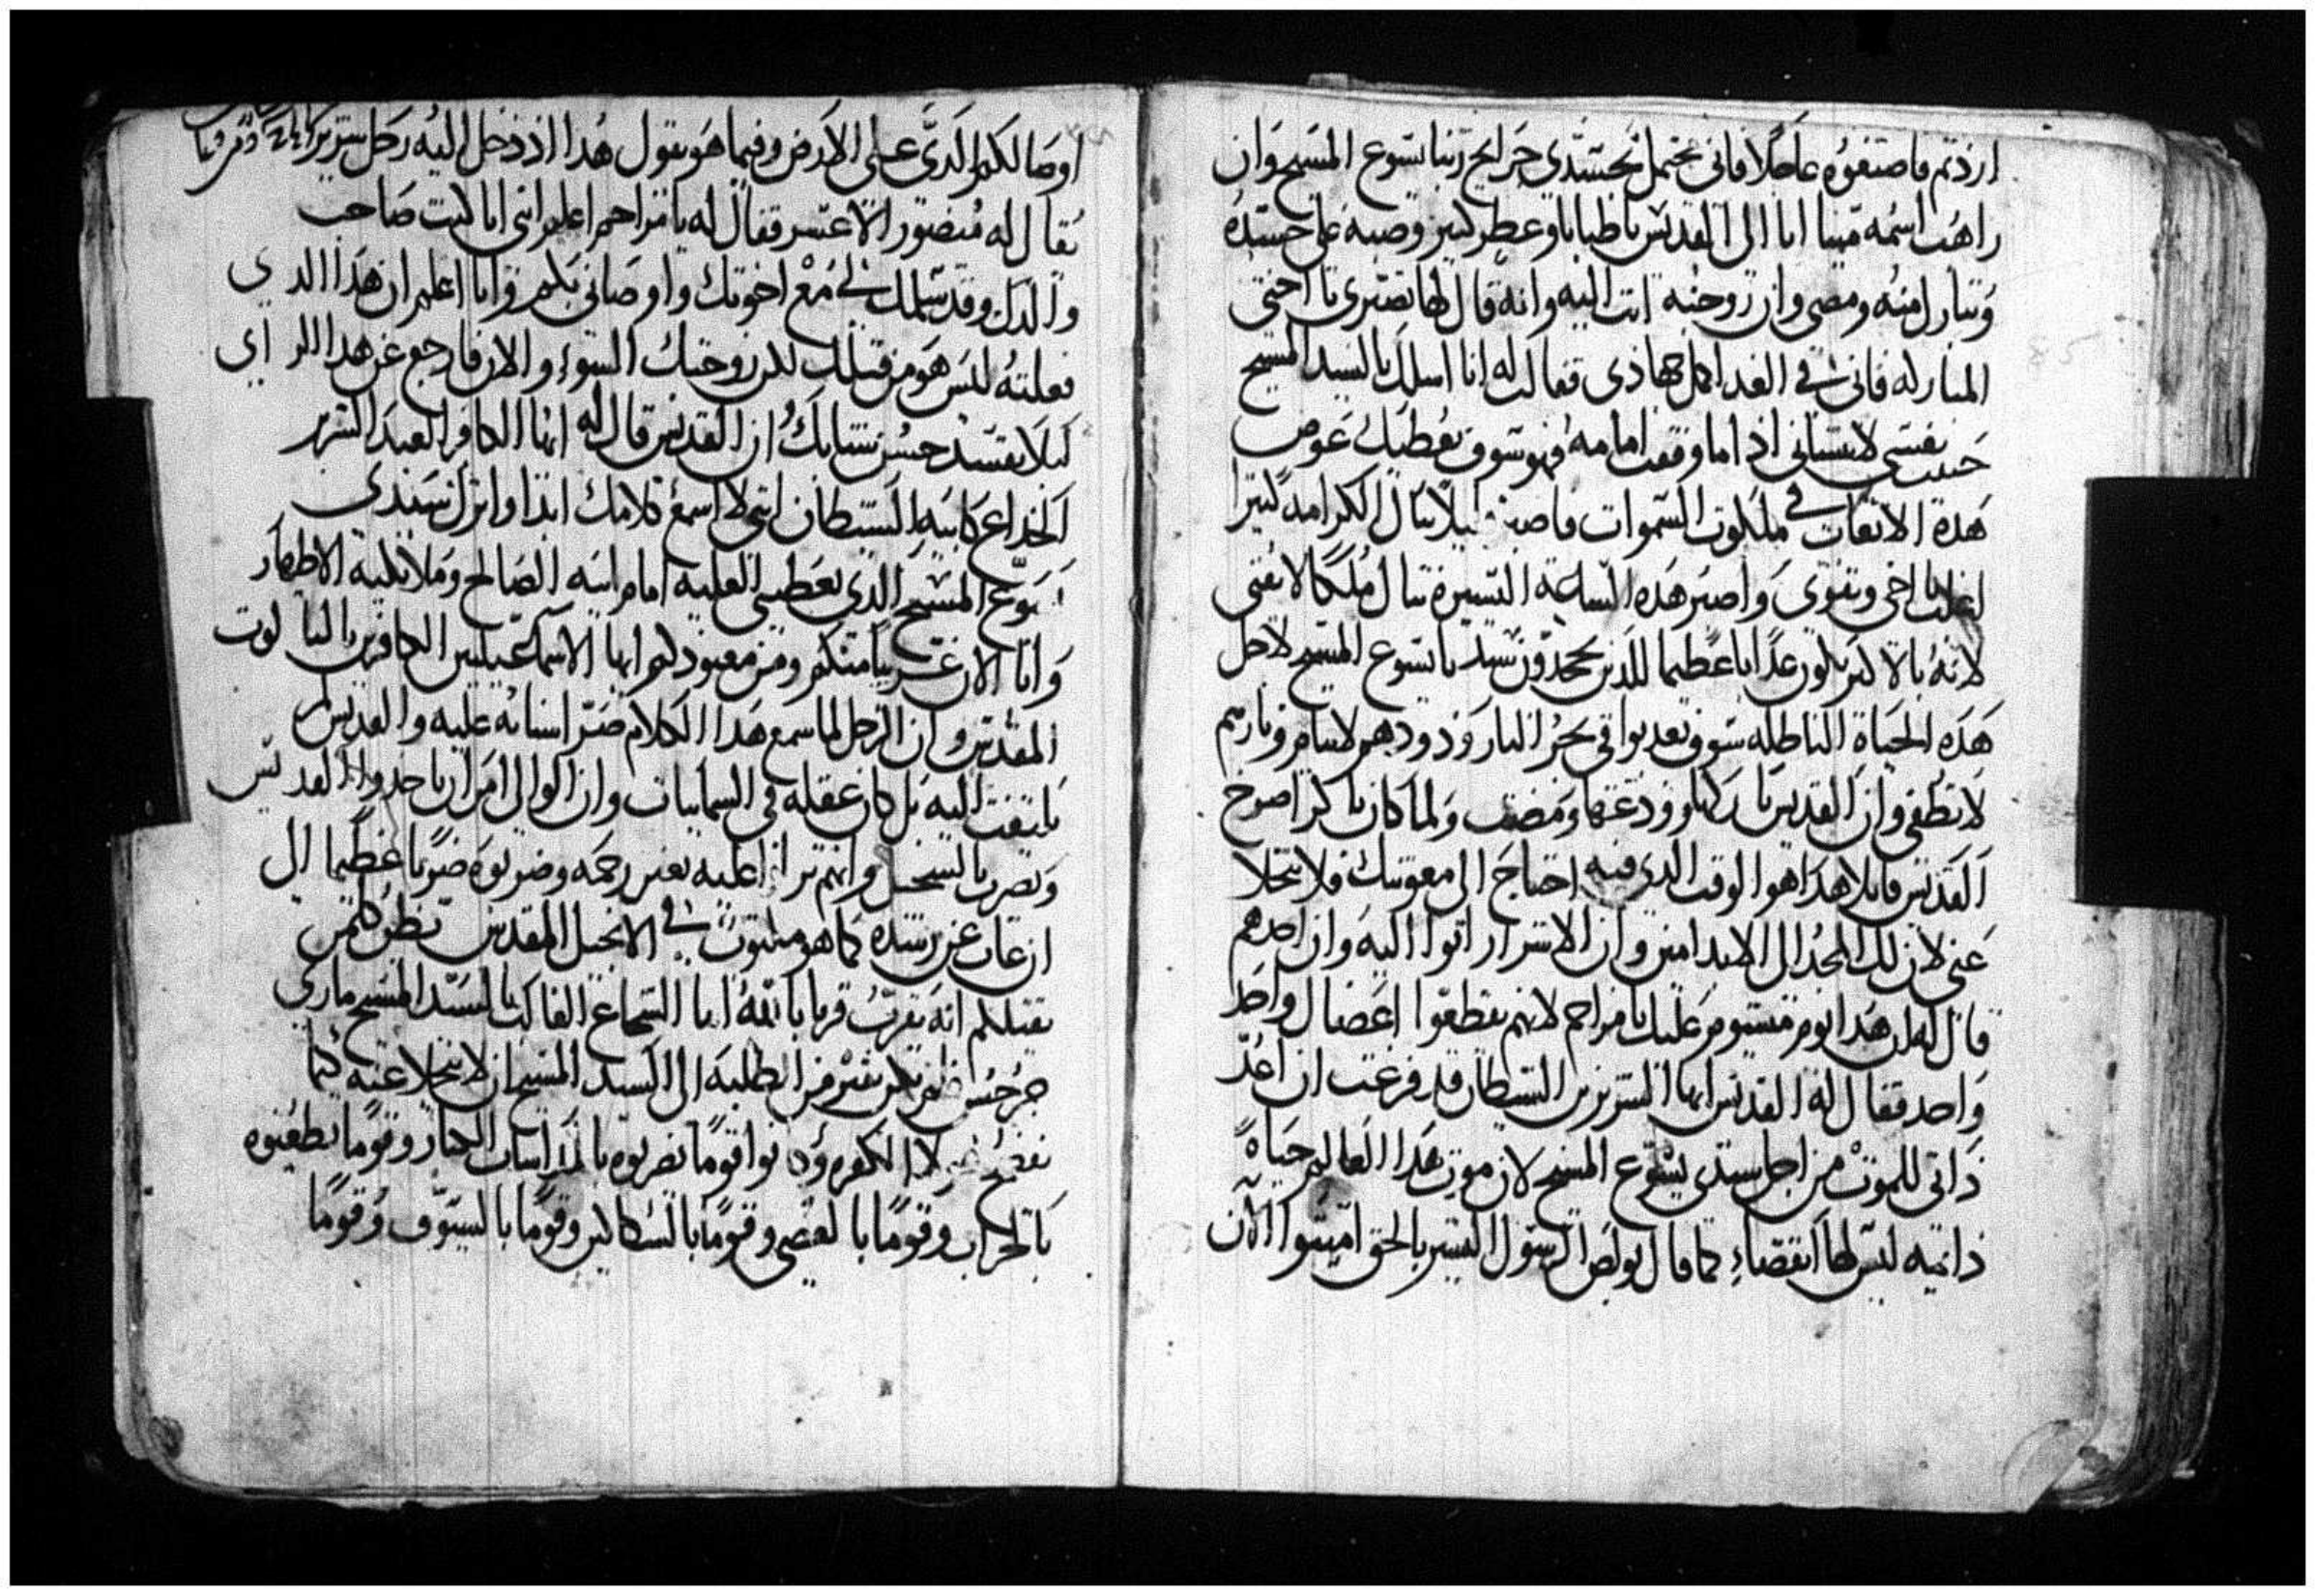 اردتم فاصنعوه عاجلا فانى محتمل بجسدى جرايح ربنا يسوع المسيح وان
راهب اسمه مينا اتا الى القديس باطيابا وعطر كتير وصبه على جسده
وتبارك منه ومضى وان زوجته اتت اليه وانه قال لها تصبرى يا اختى
المباركه فانى فى الغد اكمل جهادى فقالت له انا اسلك بالسيد المسيح
حبيب نفسى لا تنسانى اذا ما وقفت امامه فهو سوف يعطيك عوض
هذه الاتعاب فى ملكوت السموات فاصبر قليلا تنال الكرامه كتيرا
اغلب يا اخى وتقوى واصبر هذه الساعة اليسيرة تنال ملكا لا يفنى
لانه بالاكتر يكون عذابا عظيما للذين يجحدون سيدنا يسوع المسيح لاجل
هذه الحياة الباطله سوف يعذبوا فى بحر النار ودودهم لا ينام ونارهم
لا تطفى وان القديس باركها وودعها ومضت ولما كان باكر اصرخ
القديس قايلا هذا هوا الوقت الدى فيه احتاج الى معونتك فلا تتخلا
عنى لان لك المجد الى الابد امين وان الاشرار اتوا اليه وان احدهم
قال له ان هذا يوم ميشوم عليك يا مزاحم لانهم يقطعوا اعضاك واحد
واحد فقال له القديس ايها الشرير بن الشيطان قد فرغت ان اعد
ذاتى للموت من اجل سيدى يسوع المسيح لان موت هذا العالم حياة
دايمه ليس لها انقضاء كما قال بولص الرسول البشير بالحق اميتوا الآن
اوصالكم الدى على الارض وفيما هو يقول هدا اذ دخل اليه رجل شرير
يقال له منصور الاعسر فقال له يا مزاحم اعلم انى انا كنت صاحب
والدك وقد سلمك لى مع اخوتك واوصانى بكم وانا اعلم ان هذا الدى
فعلته ليس هو من قبلك لكن زوجتك السوء والان فارجع عن هدا الراى
ليلا تفسد حسن شبابك ان القديس قال له ايها الكافر العبد الشرير
الخداع كابيه الشيطان انى لا اسمع كلامك ابدا واترك سيدى
يسوع المسيح الدى يعطينى الغلبه امام ابيه الصالح وملايكته الاطهار
وانا الان غريبا منكم ومن معبودكم ايها الاسماعيليين الكافرين بالتالوت
المقدس وان الرجل لما سمع هدا الكلام صر اسنانه عليه والقديس لم
يلتفت اليه بل كان عقله فى السماييات وان الوالى امر ان ياخدوا القديس
ويضرب بالسجن وانهم ترازا عليه بغير رحمه وضربوه ضربا عظيما الى
ان غاب عن رشده كما هو مكتوب فى الانجيل المقدس يظن كلمن
يقتلكم انه يقرب قربانا لله اما الشجاع الغالب بالسيد المسيح مارى
جرجس فلم يكن يفتر من الطلبه الى السيد المسيح ان لا يتخلا عنه كيما
يفضح هولا الكفره وكانوا قوما يضربوه بالمراسات الحبار وقوما يطعنوه
بالحراب وقوما بالعصى وقوما بالسكاكين وقوما بالسيوف وقوما